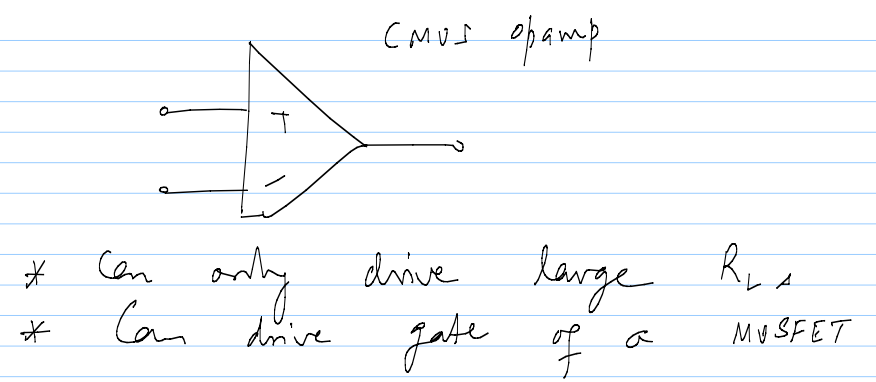 CMOS opamp
+
-
* Can only drive large RL s
* Can drive gate of a MOSFET